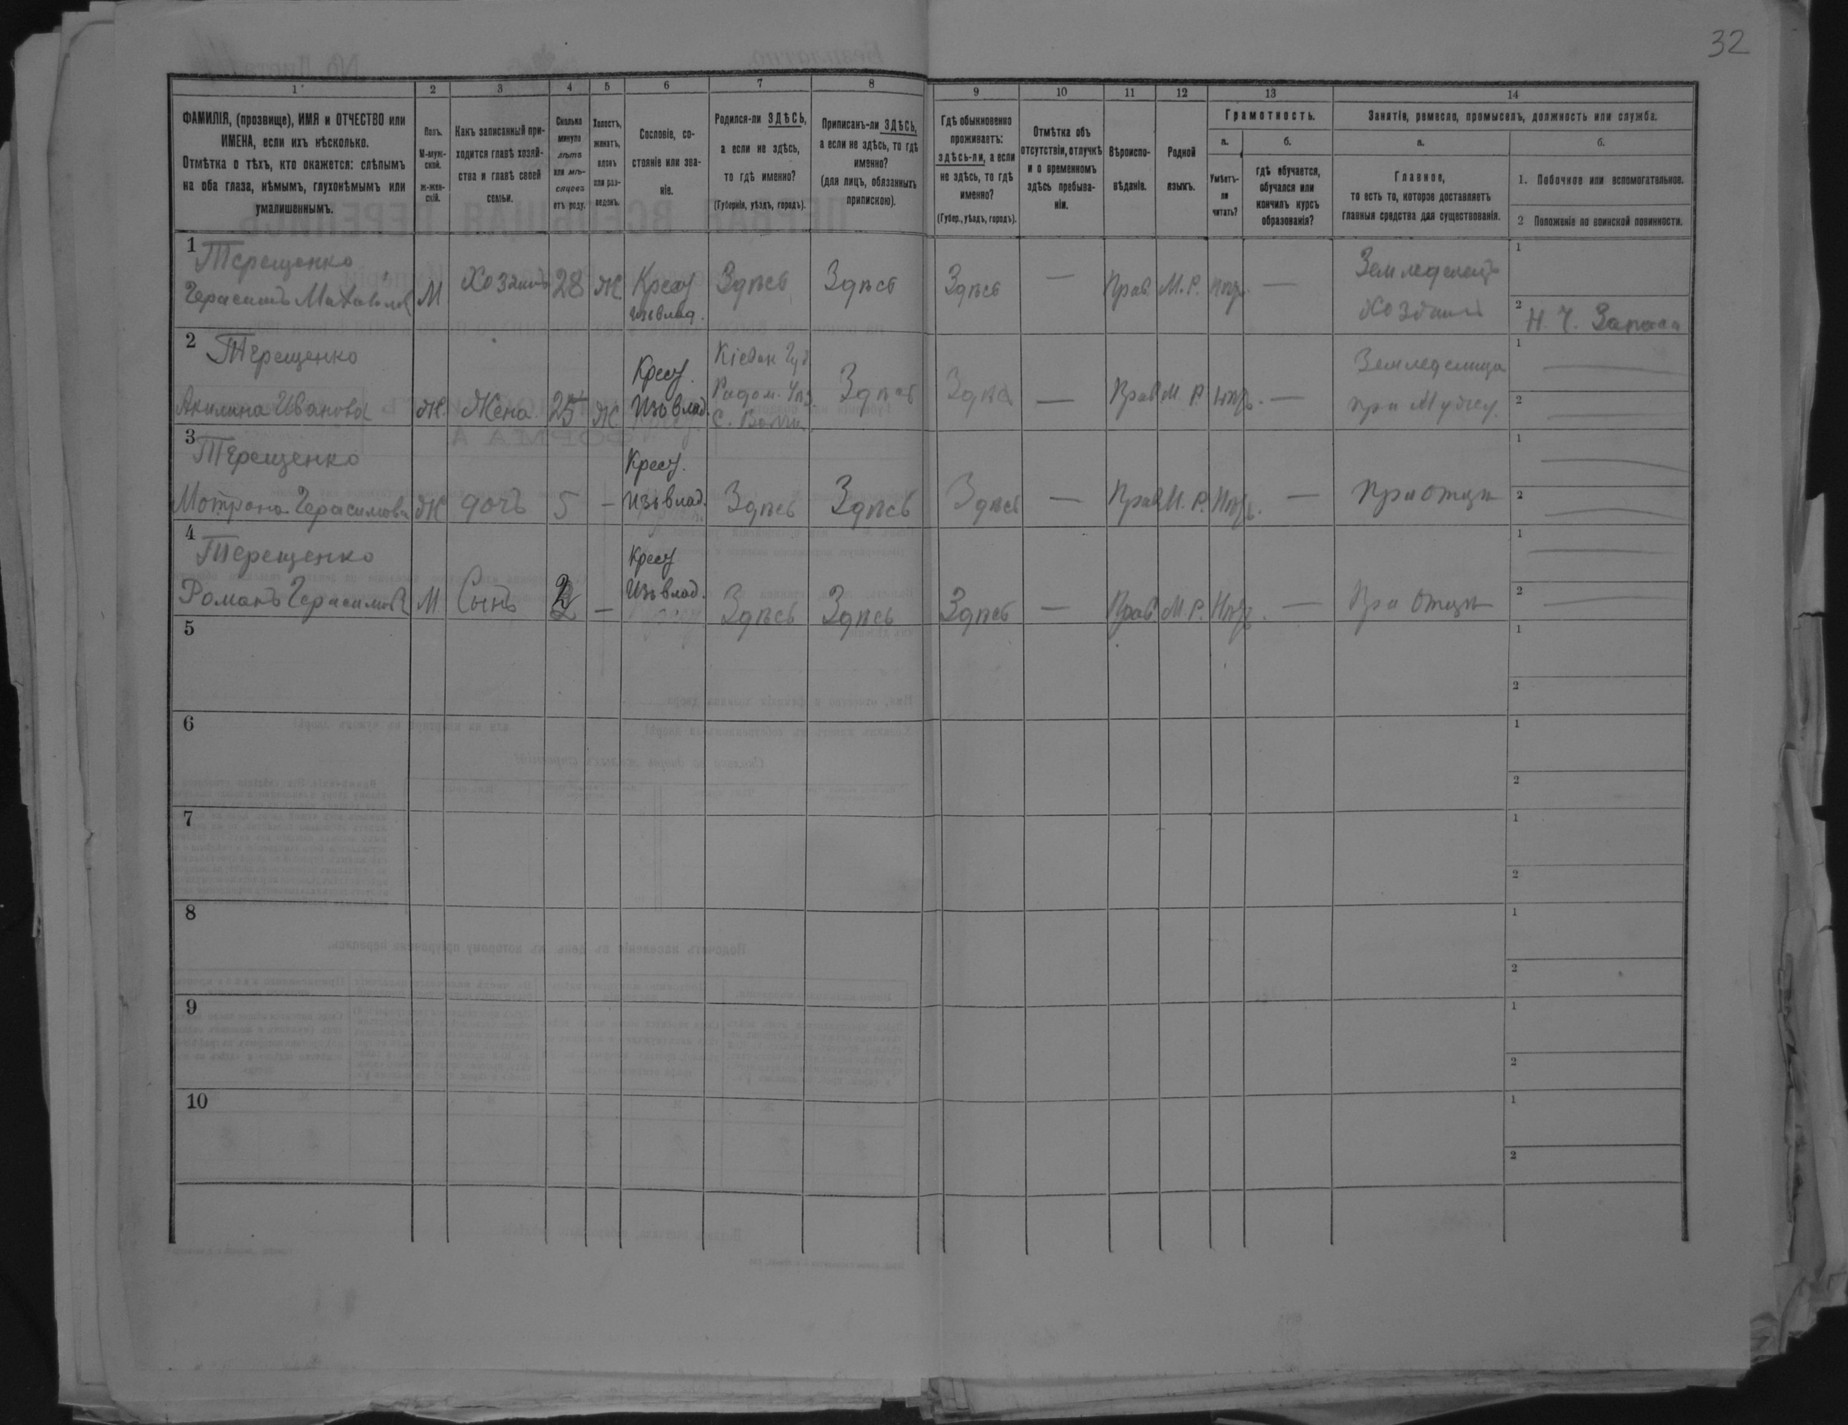 32
1 2 3 4 5 6 7 8 9 10 11 12 13 14
ФАМИЛІЯ, (прозвище), ИМЯ и ОТЧЕСТВО или
ИМЕНА, если ихъ нѣсколько.
Отмѣтка о тѣхъ, кто окажется: слѣпымъ
на оба глаза, нѣмымъ, глухонѣмымъ или
умалишеннымъ.
Полъ.
М-муж-
ской.
ж-жен-
скій.
Какъ записанный при-
ходится главѣ хозяй-
ства и главѣ своей
семьи.
Сколько
минуло
лѣтъ
или мѣ-
сяцевъ
отъ роду.
Холостъ,
женатъ,
вдовъ
или раз-
веденъ.
Сословіе, со-
стояніе или зва-
ніе.
Родился-ли ЗДѢСЬ,
а если не здѣсь,
то гдѣ именно?
(Губернія, уѣздъ, городъ).
Приписанъ-ли ЗДѢСЬ,
а если не здѣсь, то гдѣ
именно?
(для лицъ, обязанныхъ
припискою).
Гдѣ обыкновенно
проживаетъ:
здѣсь-ли, а если
не здѣсь, то гдѣ
именно?
(Губер., уѣздъ, городъ).
Отмѣтка объ
отсутствіи, отлучкѣ
и о временномъ
здѣсь пребыва-
ніи.
Вѣроиспо-
вѣданіе.
Родной
языкъ.
Грамотность.
а.
Умѣетъ-
ли
читать?
б.
гдѣ обучается,
обучался или
кончилъ курсъ
образованія?
Занятіе, ремесло, промыселъ, должность или служба.
а.
Главное,
то есть то, которое доставляетъ
главныя средства для существованія.
б.
1. Побочное или вспомогательное.
2 Положеніе по воинской повинности.
1
Терещенко
Герасимъ М
Хозяинъ 28 Ж Крест
изъ влад.
Здѣсь Здѣсь Здѣсь — Прав. М. Р. Нѣтъ. —
Земледелецъ
Хозяинъ
1
2 Н. Ч. Запаса
2
Терещенко
Акилина Иванова Ж Жена 25 Ж
Крест.
Изъ влад.
Кіевск Губ
Радом. Уѣз.
С.
Здѣсь Здѣсь — Прав М. Р. Нѣтъ. —
Земледелица
при Мужу
1
2
3
Терещенко
Мотрона Герасимова Ж дочь 5 —
Крест.
Изъ влад.
Здѣсь Здѣсь Здѣсь — Прав М. Р. Нѣтъ. — При отцѣ
1
2
4
Терещенко
Романъ Герасимов М Сынъ 2 —
Крест
Изъ влад.
Здѣсь Здѣсь Здѣсь — Прав М. Р. Нѣтъ. — При отцѣ
1
2
5
1
2
6
1
2
7
1
2
8
1
2
9
1
2
10
1
2